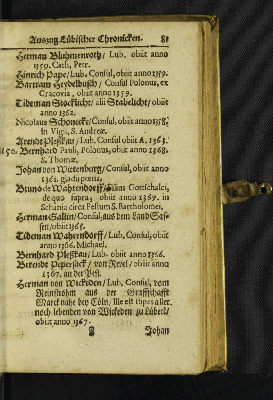 Auszug Lübischer Chronicken. 81
Herman Bluhmenroth/ Lub. obiit anno
1359. Cath. Petr.
Hinrich Pape/ Lub. Consul, obiit anno 1359.
Bartram Heydelbusch/ Consul Polonus, ex
Cracovia, obiit anno 1359.
Tideman Stocklicht/ alii Stabelicht/ obiit
anno 1362.
Nicolaus Schonecke/ Consul, obiit anno 1358.
in Vigil. S. Andreæ.
Arendt Pleßkau/ Lub. Consul obiit A. 1363.
150. Bernhard Pauli, Polonus, obiit anno 1368.
& Thomæ.
Johan von Wittenburg/ Consul, obiit anno
1362.
Bruno de Wahrendorff/ Filius Gottschalci,
de quo supra, obiit anno 1369. in
Schania circa Festum S. Bartholomei.
Herman Gallin/ Consul, aus dem Land Sas-
sen/ obiit 1365.
Tideman Wahrendorff/ Lub. Consul, obiit
anno 1366. Michael.
Bernhard Pleßkau/ Lub. obiit anno 1366.
Berendt Pepersack/ von Revel/ obiit anno
1367. an der Pest.
Herman von Wickeden/ Lub. Consul, vom
Reinstrohm aus der Graffschafft
Marck nahe bey Cöln/ Ille est stipes aller
noch lebenden von Wickeden zu Lübeck/
obiit anno 1367.
Johan